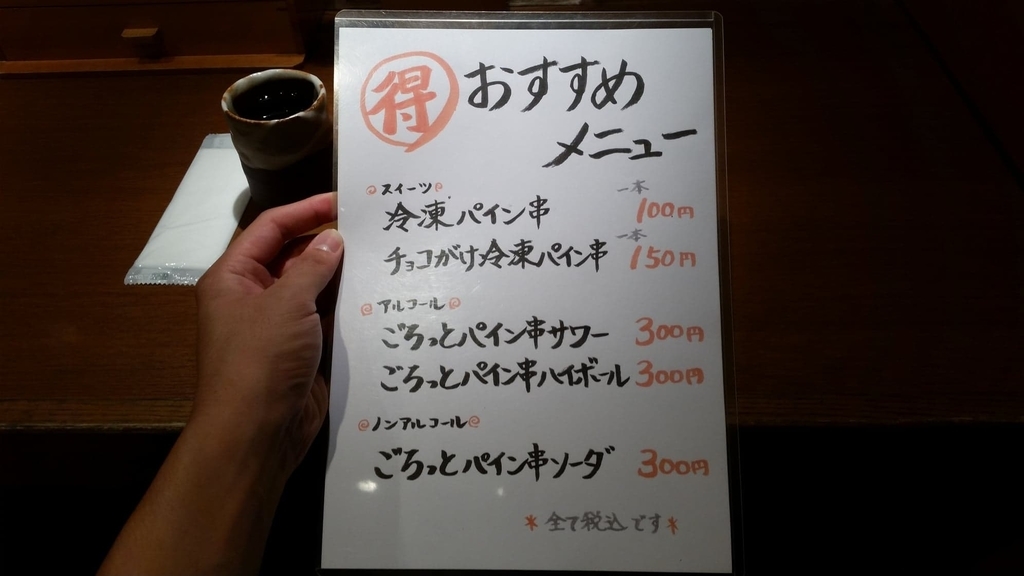 得 おすすめ
メニュー
スイーツ
冷凍パイン串 一本 100円
チョコがけ冷凍パイン串 一本 150円
アルコール
ごろっとパイン串サワー 300円
ごろっとパイン串ハイボール 300円
ノンアルコール
ごろっとパイン串ソーダ 300円
*全て税込です*